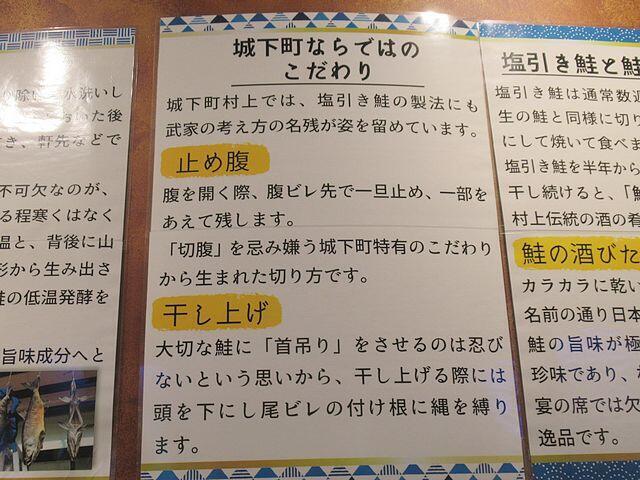 の除に
水洗いし
いた後
き、軒先などで
不可欠なのが、
る程寒くはなく
温と、背後に山
形から生み出さ
鮭の低温発酵を
旨味成分へと
城下町ならではの
こだわり
城下町村上では、塩引き鮭の製法にも
武家の考え方の名残が姿を留めています。
止め腹
腹を開く際、腹ビレ先で一旦止め、一部を
あえて残します。
「切腹」を忌み嫌う城下町特有のこだわり
から生まれた切り方です。
干し上げ
大切な鮭に「首吊り」をさせるのは忍び
ないという思いから、干し上げる際には
頭を下にし尾ビレの付け根に縄を縛り
ます。
塩引き鮭と鮭
塩引き鮭は通常数週
生の鮭と同様に切り
にして焼いて食べま
塩引き鮭を半年から
干し続けると、「鮭
村上伝統の酒の肴
鮭の酒びた
カラカラに乾い
名前の通り日本
鮭の旨味が極
珍味であり、村
宴の席では欠
逸品です。